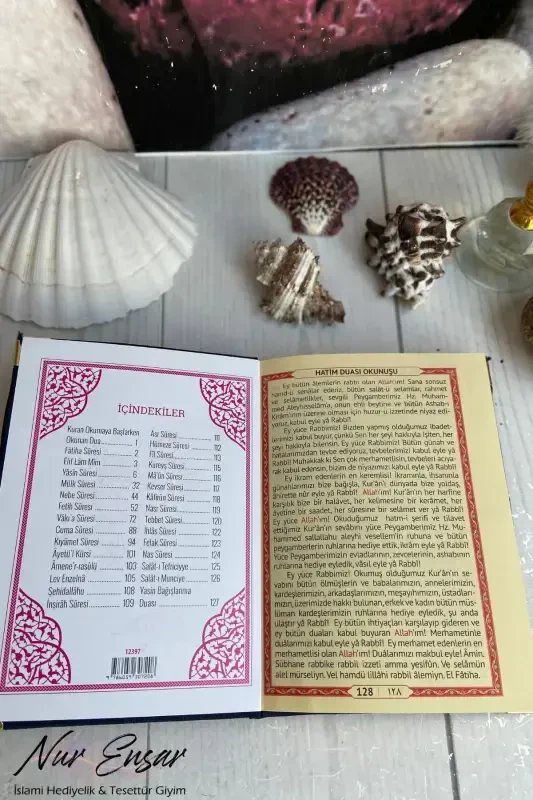 İÇİNDEKİLER
Kuran Okumaya Başlarken
Okunan Dua 1
Fâtiha Sûresi 2
Elif Lâm Mim 3
Yâsin Sûresi 6
Mülk Sûresi 32
Nebe Sûresi 44
Fetih Sûresi 52
Vâkı'a Sûresi 72
Cuma Sûresi 88
Kıyâmet Sûresi 94
Âyetü'l Kürsi 101
Âmene'r-rasûlü 103
Lev Enzelnâ 105
Şehidallâhu 108
İnşirâh Sûresi 109
Asr Sûresi 111
Hümeze Sûresi 112
Fîl Sûresi 113
Kureyş Sûresi 115
Mâ'ûn Sûresi 116
Kevser Sûresi 117
Kâfirûn Sûresi 118
Nasr Sûresi 119
Tebbet Sûresi 120
İhlâs Sûresi 122
Felak Sûresi 123
Nas Sûresi 124
Salât-ı Tefriciyye 125
Salât-ı Munciye 126
Yasin Bağışlanma
Duası 127
12397
HATİM DUASI OKUNUŞU
Ey bütün âlemlerin rabbi olan Allah'ım! Sana sonsuz
hamd-ü senâlar ederiz, bütün salât-ü selamlar, rahmet
ve selâmetlikler, sevgili Peygamberimiz Hz. Muham-
med Aleyhisselâmın, onun ehli beytine ve bütün Ashab-ı
Kirâm'ının üzerine olması için huzur-u izzetinde niyaz edi-
yoruz, kabul eyle yâ Rabbi!
Ey yüce Rabbimiz! Bizden yapmış olduğumuz ibadet-
lerimizi kabul buyur, çünkü Sen her şeyi hakkıyla işiten, her
şeyi hakkıyla bilensin. Ey yüce Rabbimiz! Bütün günah ve
hatalarımızdan tevbe ediyoruz, tevbelerimizi kabul eyle yâ
Rabbi! Muhakkak ki Sen çok merhametlisin, tevbeleri acıya-
rak kabul edensin, bizim de niyazımızı kabul eyle yâ Rabbi!
Ey ikram edenlerin en keremlisi! İkramınla, ihsanınla
günahlarımızı bize bağışla, Kur'ân'ı dünyada bize yoldaş,
âhirette nûr eyle yâ Rabbi! Allah'ım! Kur'ân'ın her harfine
karşılık bize bir halâvet, her kelimesine bir kerâmet, her
âyetine bir saadet, her sûresine bir selâmet ver yâ Rabbi!
Ey yüce Allah'ım! Okuduğumuz hatm-i şerifi ve tilavet
ettiğimiz Kur'ân'ın sevâbını yüce Peygamberimiz Hz. Mu-
hammed sallallahu aleyhi vesellem'in ruhuna ve bütün
peygamberlerin ruhlarına hediye ettik, ikrâm eyle yâ Rabbi!
Yüce Peygamberimizin evladlarının, zevcelerinin, ashabının
ruhlarına hediye eyledik, vâsıl eyle yâ Rabbi!
Ey yüce Rabbimiz! Okumuş olduğumuz Kur'ân'ın se-
vabını bütün ölmüşlerin ve babalarımızın, annelerimizin,
kardeşlerimizin, arkadaşlarımızın, meşayıhımızın, üstadları-
mızın, üzerimizde hakkı bulunan, erkek ve kadın bütün müs-
lüman kardeşlerimizin ruhlarına hediye eyledik, şu anda
ulaştır yâ Rabbi! Ey bütün ihtiyaçları karşılayıp gideren ve
ey bütün duâları kabul buyuran Allah'ım! Merhametinle
duâlarımızı kabul eyle yâ Rabbi! Ey merhamet edenlerin en
merhametlisi olan Allah'ım! Duâlarımızı makbul eyle! Âmîn.
Sübhane rabbike rabbil izzeti amma yesifûn. Ve selâmün
alel mürseliyn. Vel hamdü lillâhi rabbil âlemiyn. El Fâtiha.
128 ١٢٨
Nur Ensar
İslami Hediyelik & Tesettür Giyim